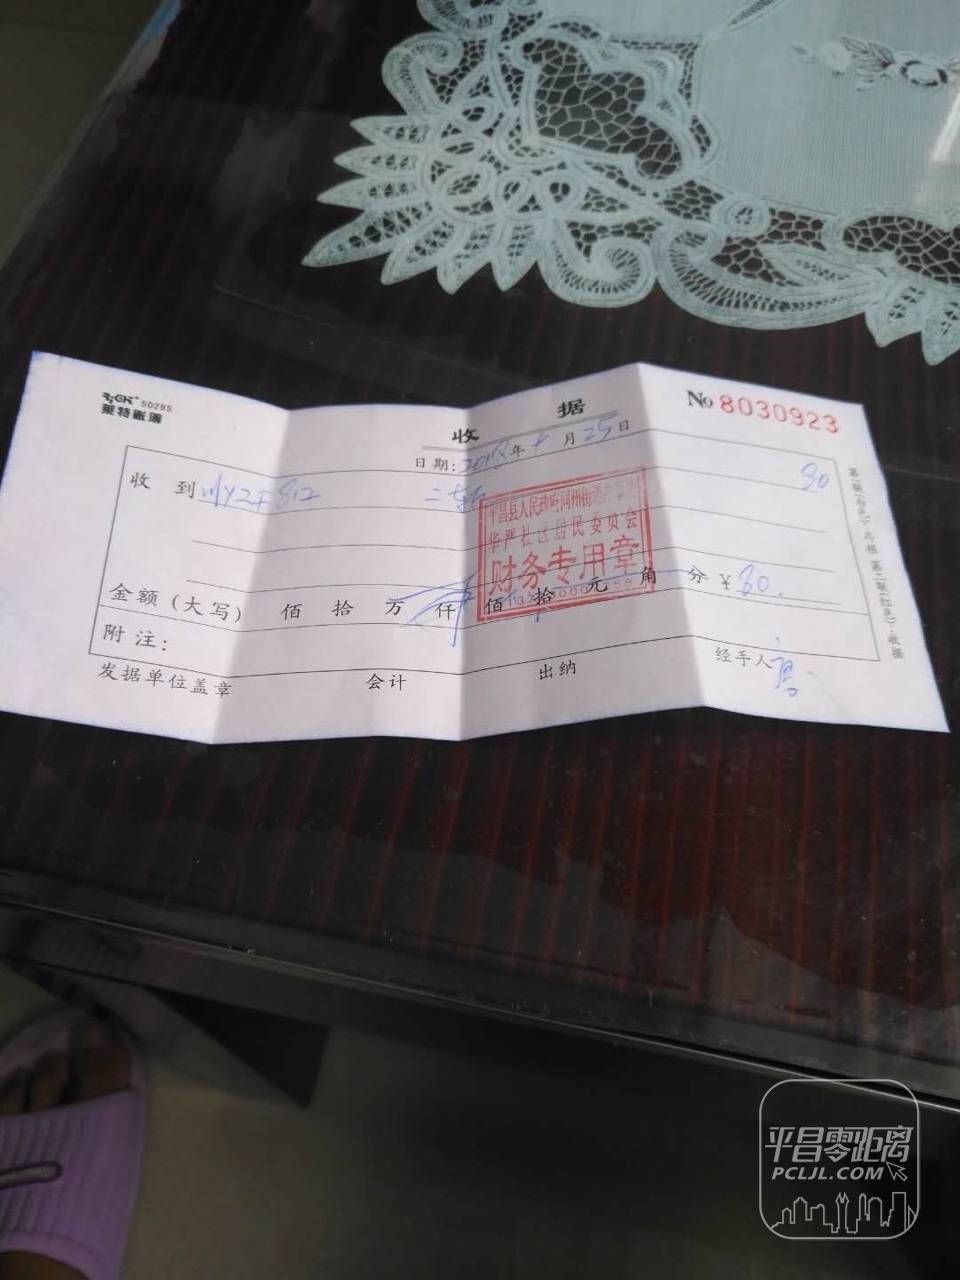 50295
莱特账簿
收 据
No 8030923
日期: 2018年 月 25日
收 到 川Y2F812 80
平昌县人民政府同州街道办事处
华严社区居民委员会
财务专用章
金额(大写) 佰 拾 万 仟 佰 拾 元 角 分 ¥ 80.
附 注:
发据单位盖章 会计 出纳 经手人
平昌零距离
PCLJL.COM